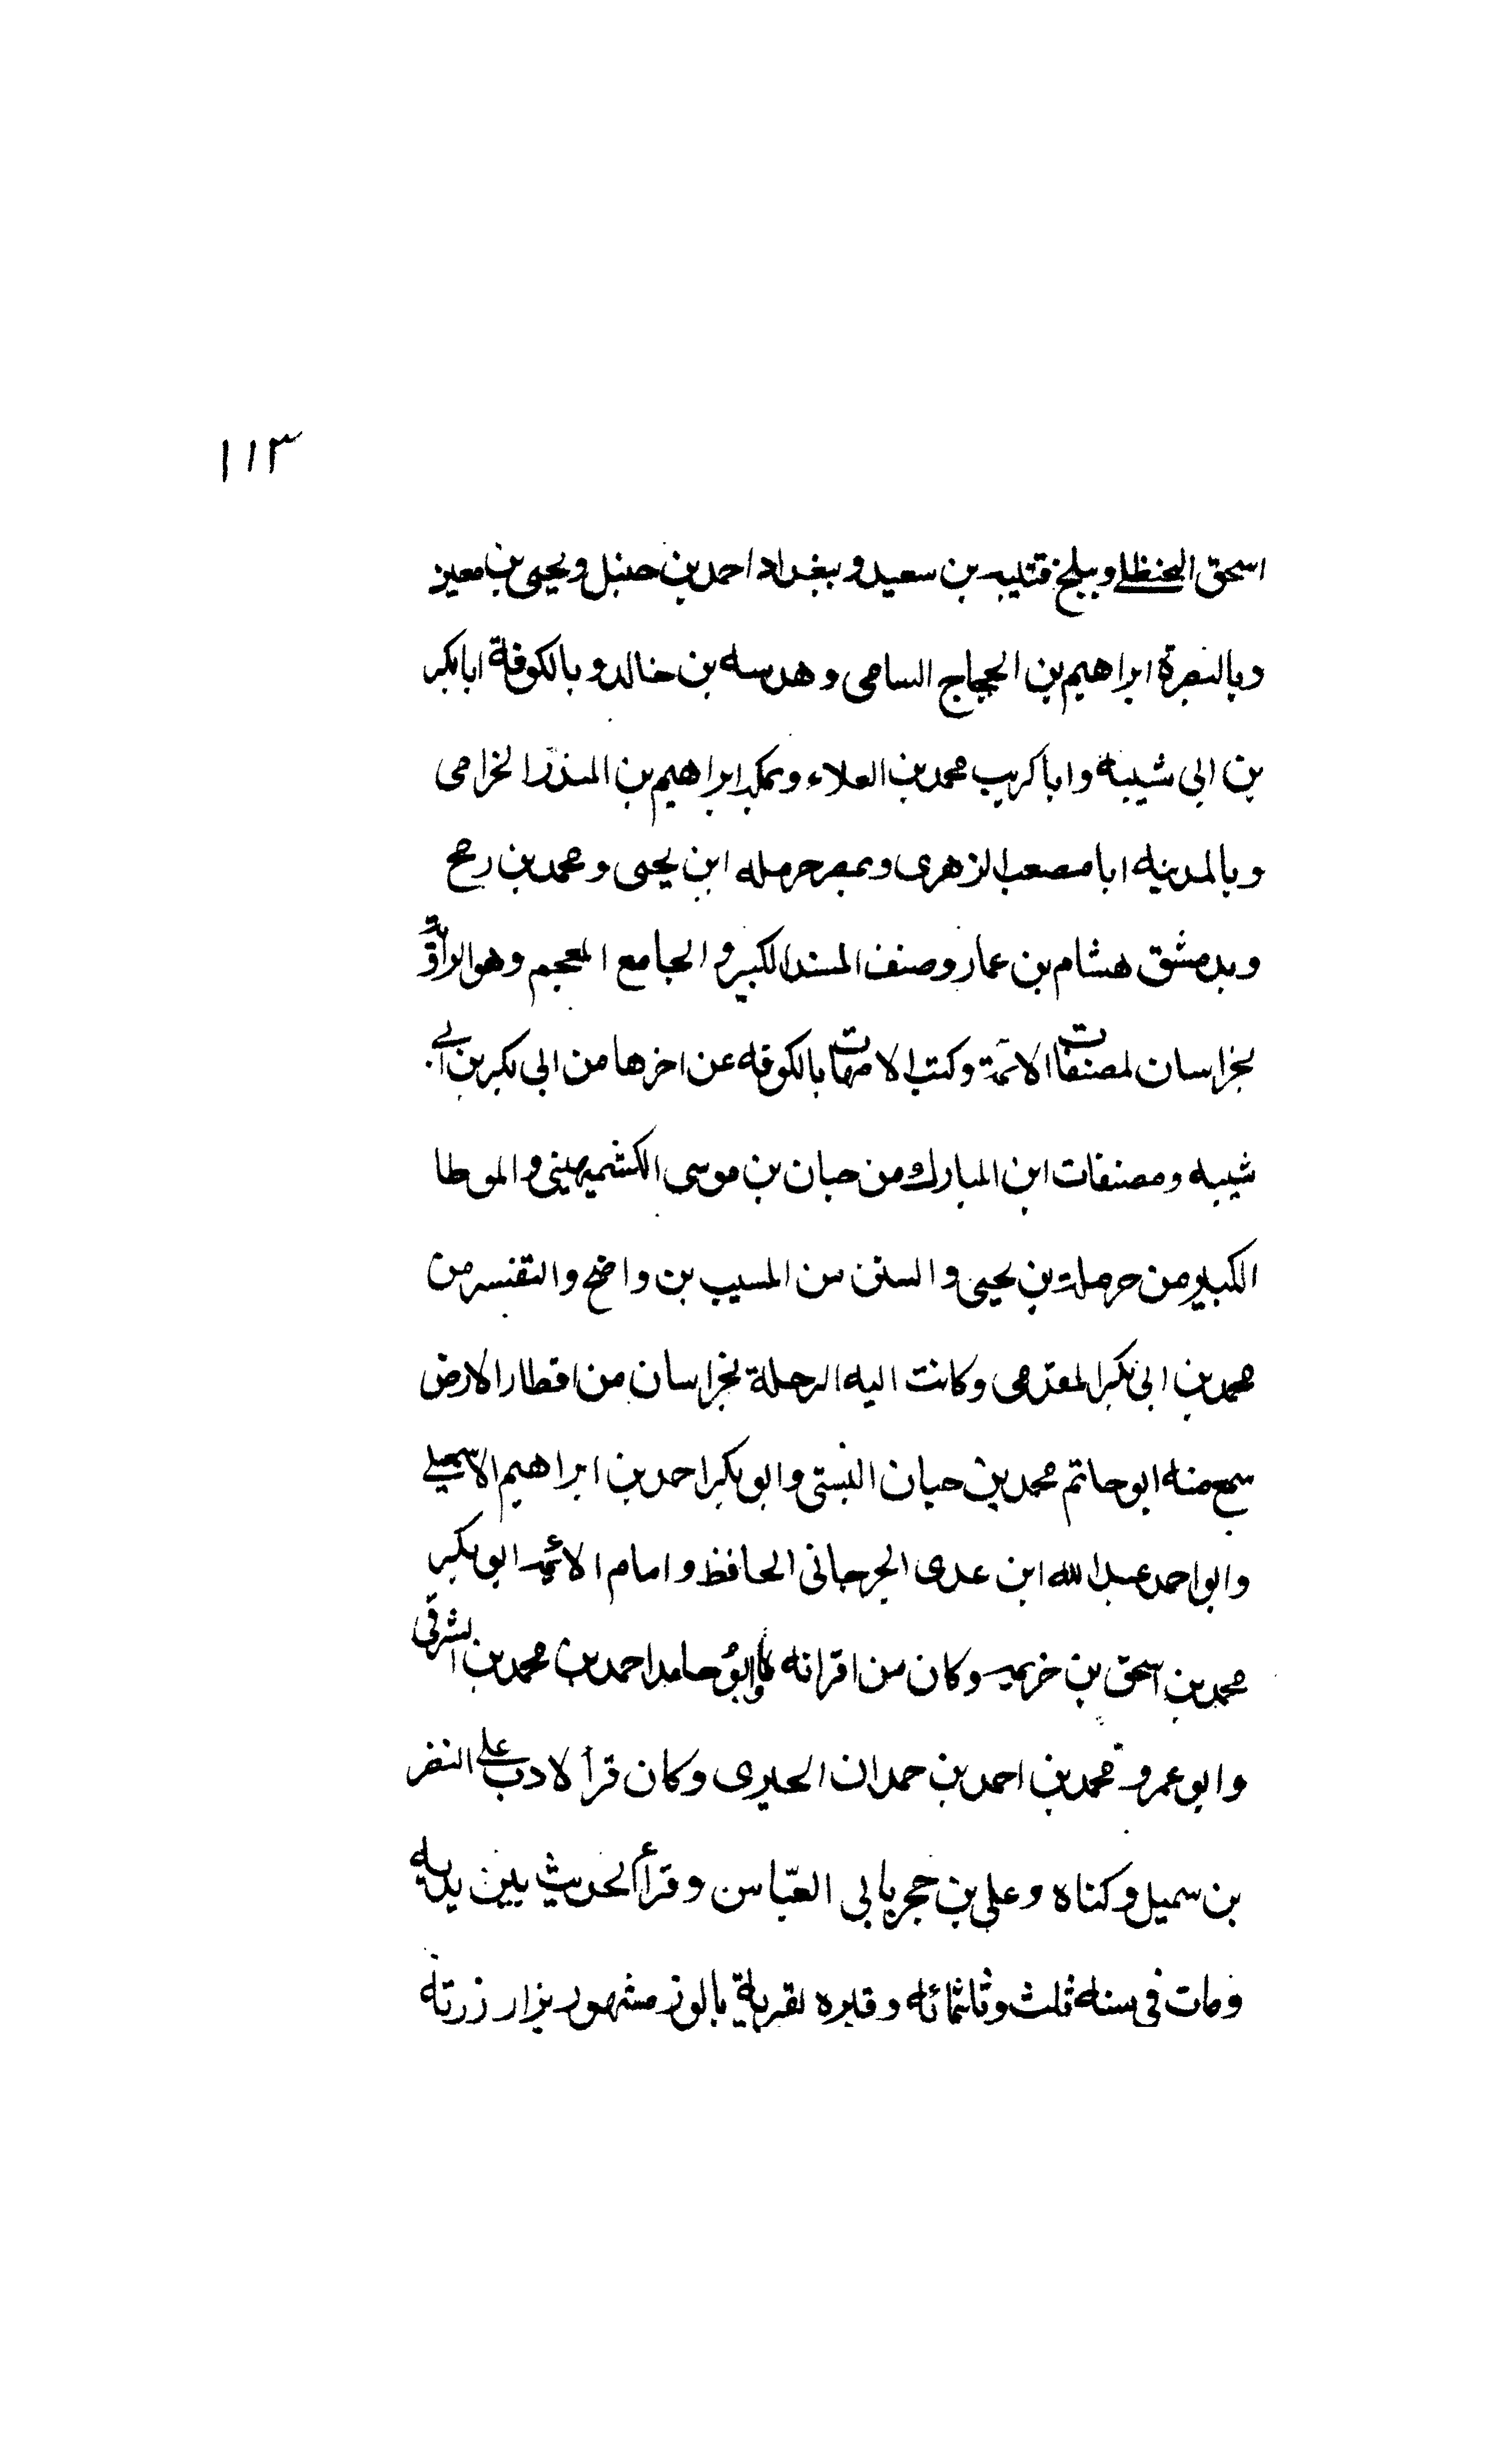 ١١٣
اسحق الحنظلى وببلخ قتيبه بن سعيد و ببغداد احمد بن حنبل ويحيى بن معين
وبالبصرة ابراهيم بن الحجاج السامى وهدبه بن خالد و بالكوفة ابا بكر
بن ابى شيبه وابا كريب محمد بن العلاء وبمكه ابراهيم بن المنذر الخزامى
وبالمدينه ابا مصعب الزهرى وبمصر حرمله ابن يحيى ومحمد بن رمح
وبدمشق هشام بن عمار وصنف المسند الكبير و الجامع المعجم وهو الراوية
بخراسان لمصنفات الائمة وكتب الامهات بالكوفه عن اخرها من ابى بكر بن ابى
شيبه ومصنفات ابن المبارك من حبان بن موسى الكشميهينى و الموطا
الكبير من حرملة بن يحيى والسنن من المسيب بن واضح والتفسير من
محمد بن ابى بكر المقدمى وكانت اليه الرحلة بخراسان من اقطار الارض
سمع منه ابو حاتم محمد بن حبان البستى وابو بكر احمد بن ابراهيم الاسمعيلى
وابو احمد عبد الله ابن عدى الجرجانى الحافظ وامام الائمه ابو بكر
محمد بن اسحق بن خزيمه وكان من اقرانه وابو حامد احمد بن محمد بن الشرقى
وابو عمرو محمد بن احمد بن حمدان الحيرى وكان قرأ لادب على النضر
بن سميل وكناه وعلى بن حجر بابى العبّاس وقرأ الحديث بين يديه
ومات فى سنه ثلث وثلثمائه وقبره بقرية بالوز مشهور يزار زرته